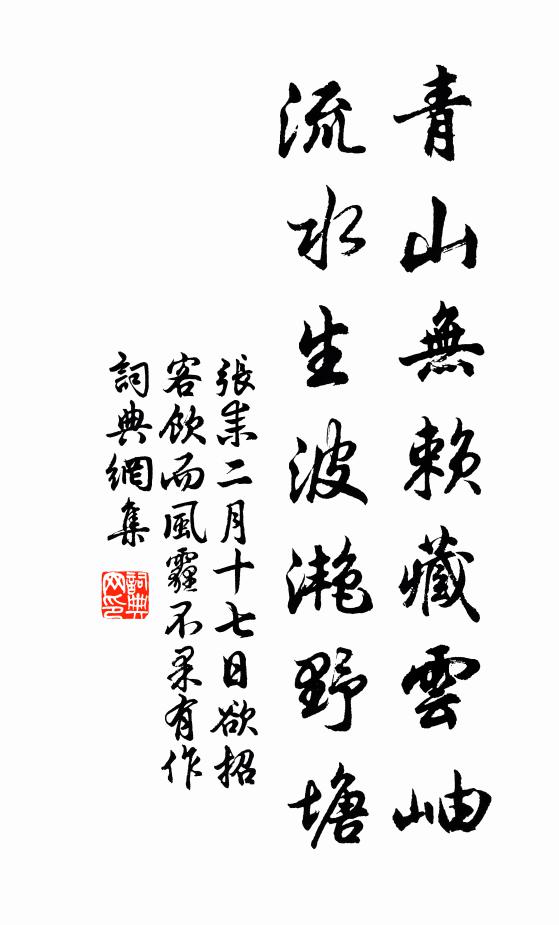 青山無賴藏雲岫
流水生波灩野塘
張耒二月十七日欲招
客飲而風霾不果有作
詞典網集
詞典
网印